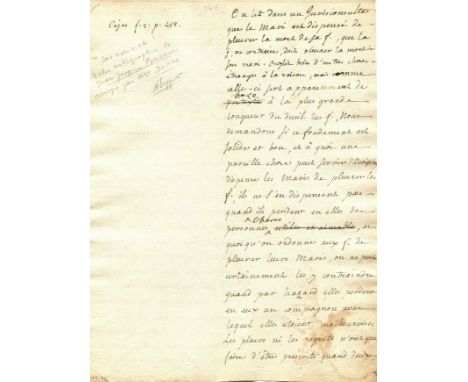 Cujas f. 2. p. 452.
des notes et
corrigés par
On lit dans un Jurisconsulte
que le Mari est dispensé de
pleurer la mort de sa f., que la
f. au contraire, doit pleurer la mort de
son mari. Qu'il y a bien d'autres choses
étranges à la raison, mais comme
celle-ci sert apparemment de
base
prétexte à la plus grande
longueur du deuil des f. Nous
demandons si ce fondement est
solide et bon, et à quoi une
pareille chose peut servir.
dispense les Maris de pleurer les
f., ils ne s'en dispensent pas
quand ils perdent en elles des
chères
personnes utiles et aimables, et
quoiqu'on ordonne aux f. de
pleurer leurs Maris, on ne peut
certainement les y contraindre
quand par hazard elles perdent
en eux un compagnon avec
lequel elles étoient malheureuses.
Les pleurs ni les regrets n'ont que
faire d'être prescrits quand deux